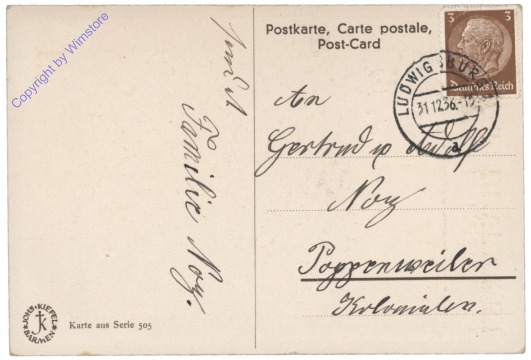 Copyright by Winstore
Postkarte, Carte postale,
Post-Card
3 3
Deutsches Reich
LUDWIGSBURG
31.12.36.-1
a
An
Gertrud u. Adolf
Noz
Poppenweiler
Kolonialw.
Familie Noz.
JOHS. KIEFEL
BARMEN
JK
Karte aus Serie 505